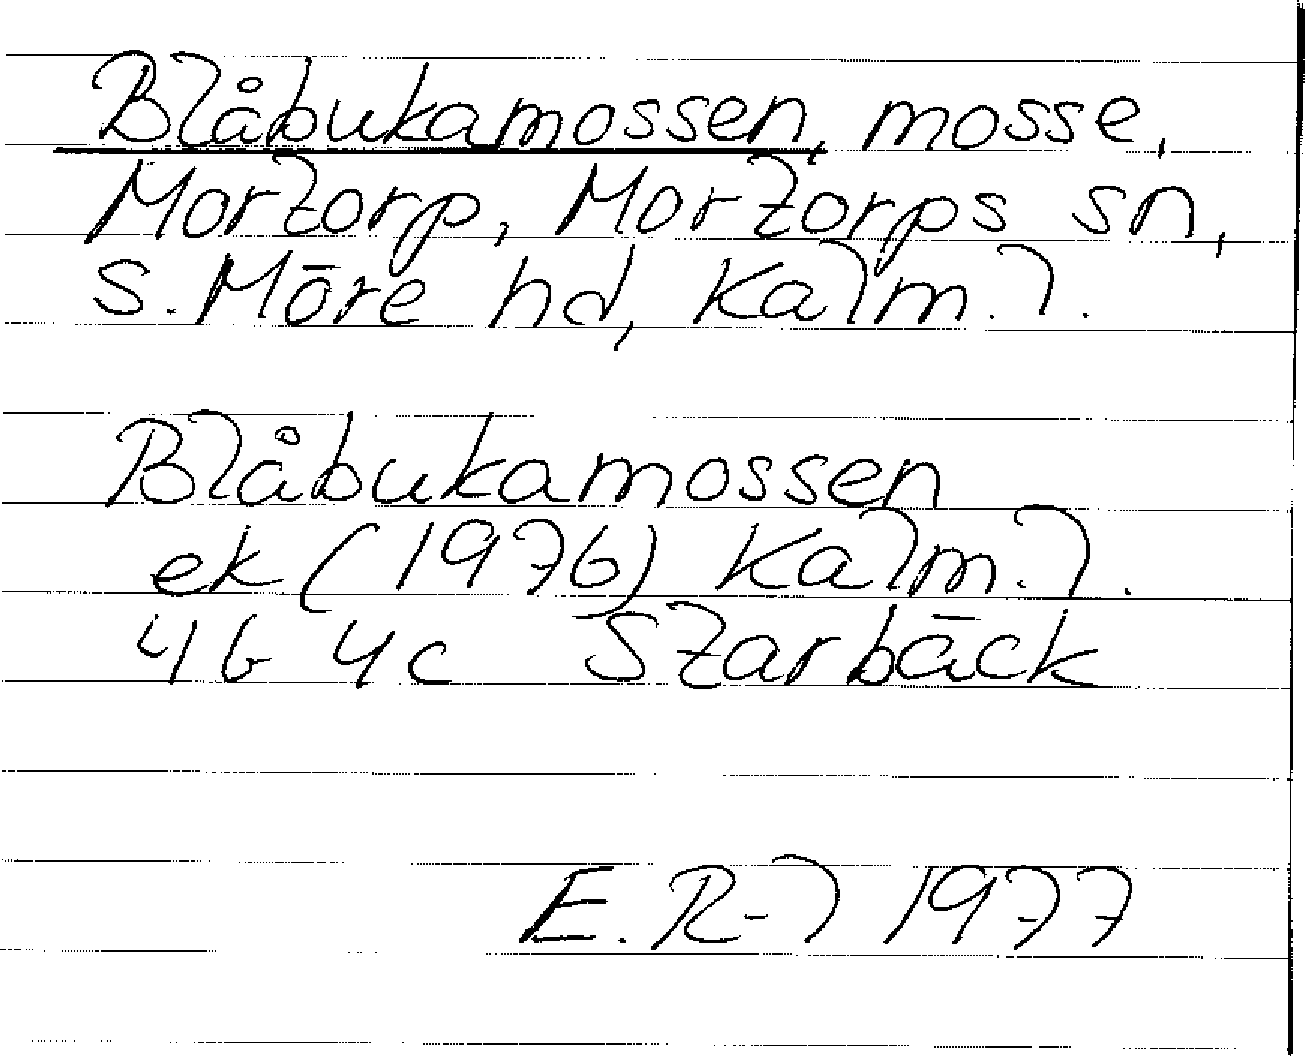 Blåbukamossen, mosse,
Mortorp, Mortorps sn,
S. Möre hd, Kalm. l.
Blåbukamossen
ek (1976) Kalm. l.
4b 4c Starbäck
E. R-l 1977